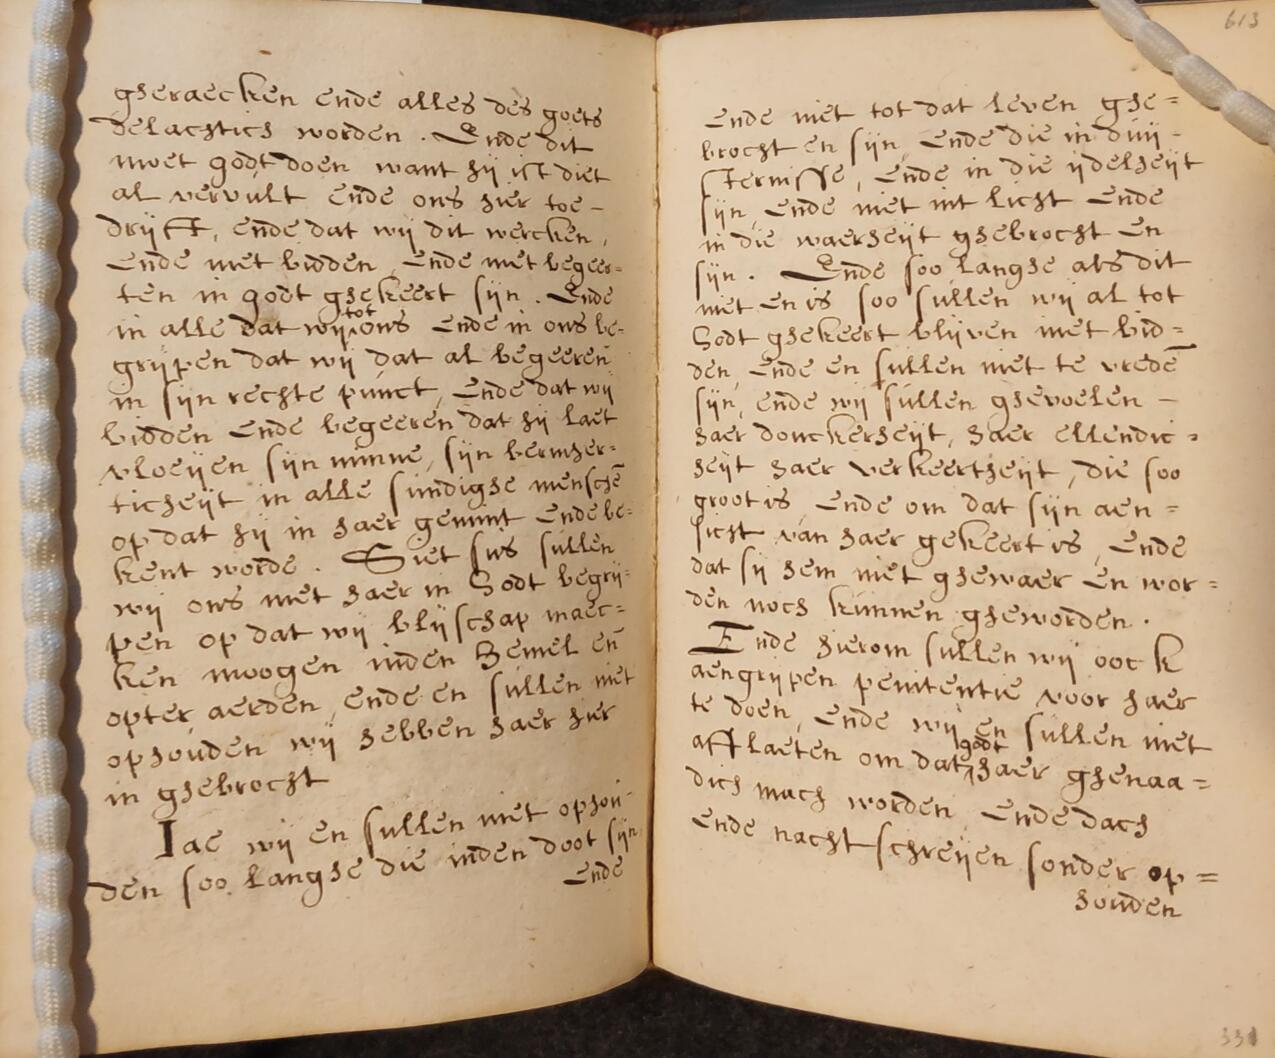 gheraecken ende alles des goets
delachtich worden. Ende dit
moet godt doen want hij ist diet
al vervult ende ons hier toe-
drijft, ende dat wij dit wercken,
Ende met bidden, Ende met begeer=
ten in godt ghekeert sijn. Ende
in alle dat wij tot ons Ende in ons be-
grijpen dat wij dat al begeeren
in sijn rechte punct, Ende dat wij
bidden Ende begeeren dat hij laet
vloeijen sijn minne, sijn bermher-
ticheijt in alle sundighe mensche̅
op dat hij in haer gemint Ende be=
kent worde. Siet sus sullen
wij ons met haer in Godt begrij-
pen op dat wij blijschap maec=
ken moogen inden Hemel en̅
opter aerden, ende en sullen niet
ophouden wij hebben haer hier
in ghebrocht
Iae wij en sullen niet ophou-
den soo langhe die inden doot sijn
Ende
613
Ende niet tot dat leven ghe=
brocht en sijn, Ende die in duij-
sternisse, Ende in die ijdelheijt
sijn, Ende niet int licht Ende
in die waerheijt ghebrocht En
sijn. Ende soo langhe als dit
niet En is soo sullen wij al tot
Godt ghekeert blijven met bid=
den, Ende en sullen niet te vrede̅
sijn, ende wij sullen ghevoelen -
haer donckerheijt, haer ellendic=
heijt haer verkeertheijt, die soo
groot is, Ende om dat sijn aen=
sicht van haer gekeert is, Ende
dat sij hem niet ghewaer En wor=
den noch kunnen gheworden.
Ende hierom sullen wij oock
aengrijpen penitentie voor haer
te doen, Ende wij en sullen niet
afflaeten om dat godt haer ghenaa=
dich mach worden, Ende dach
Ende nacht schreijen sonder op=
houden
331